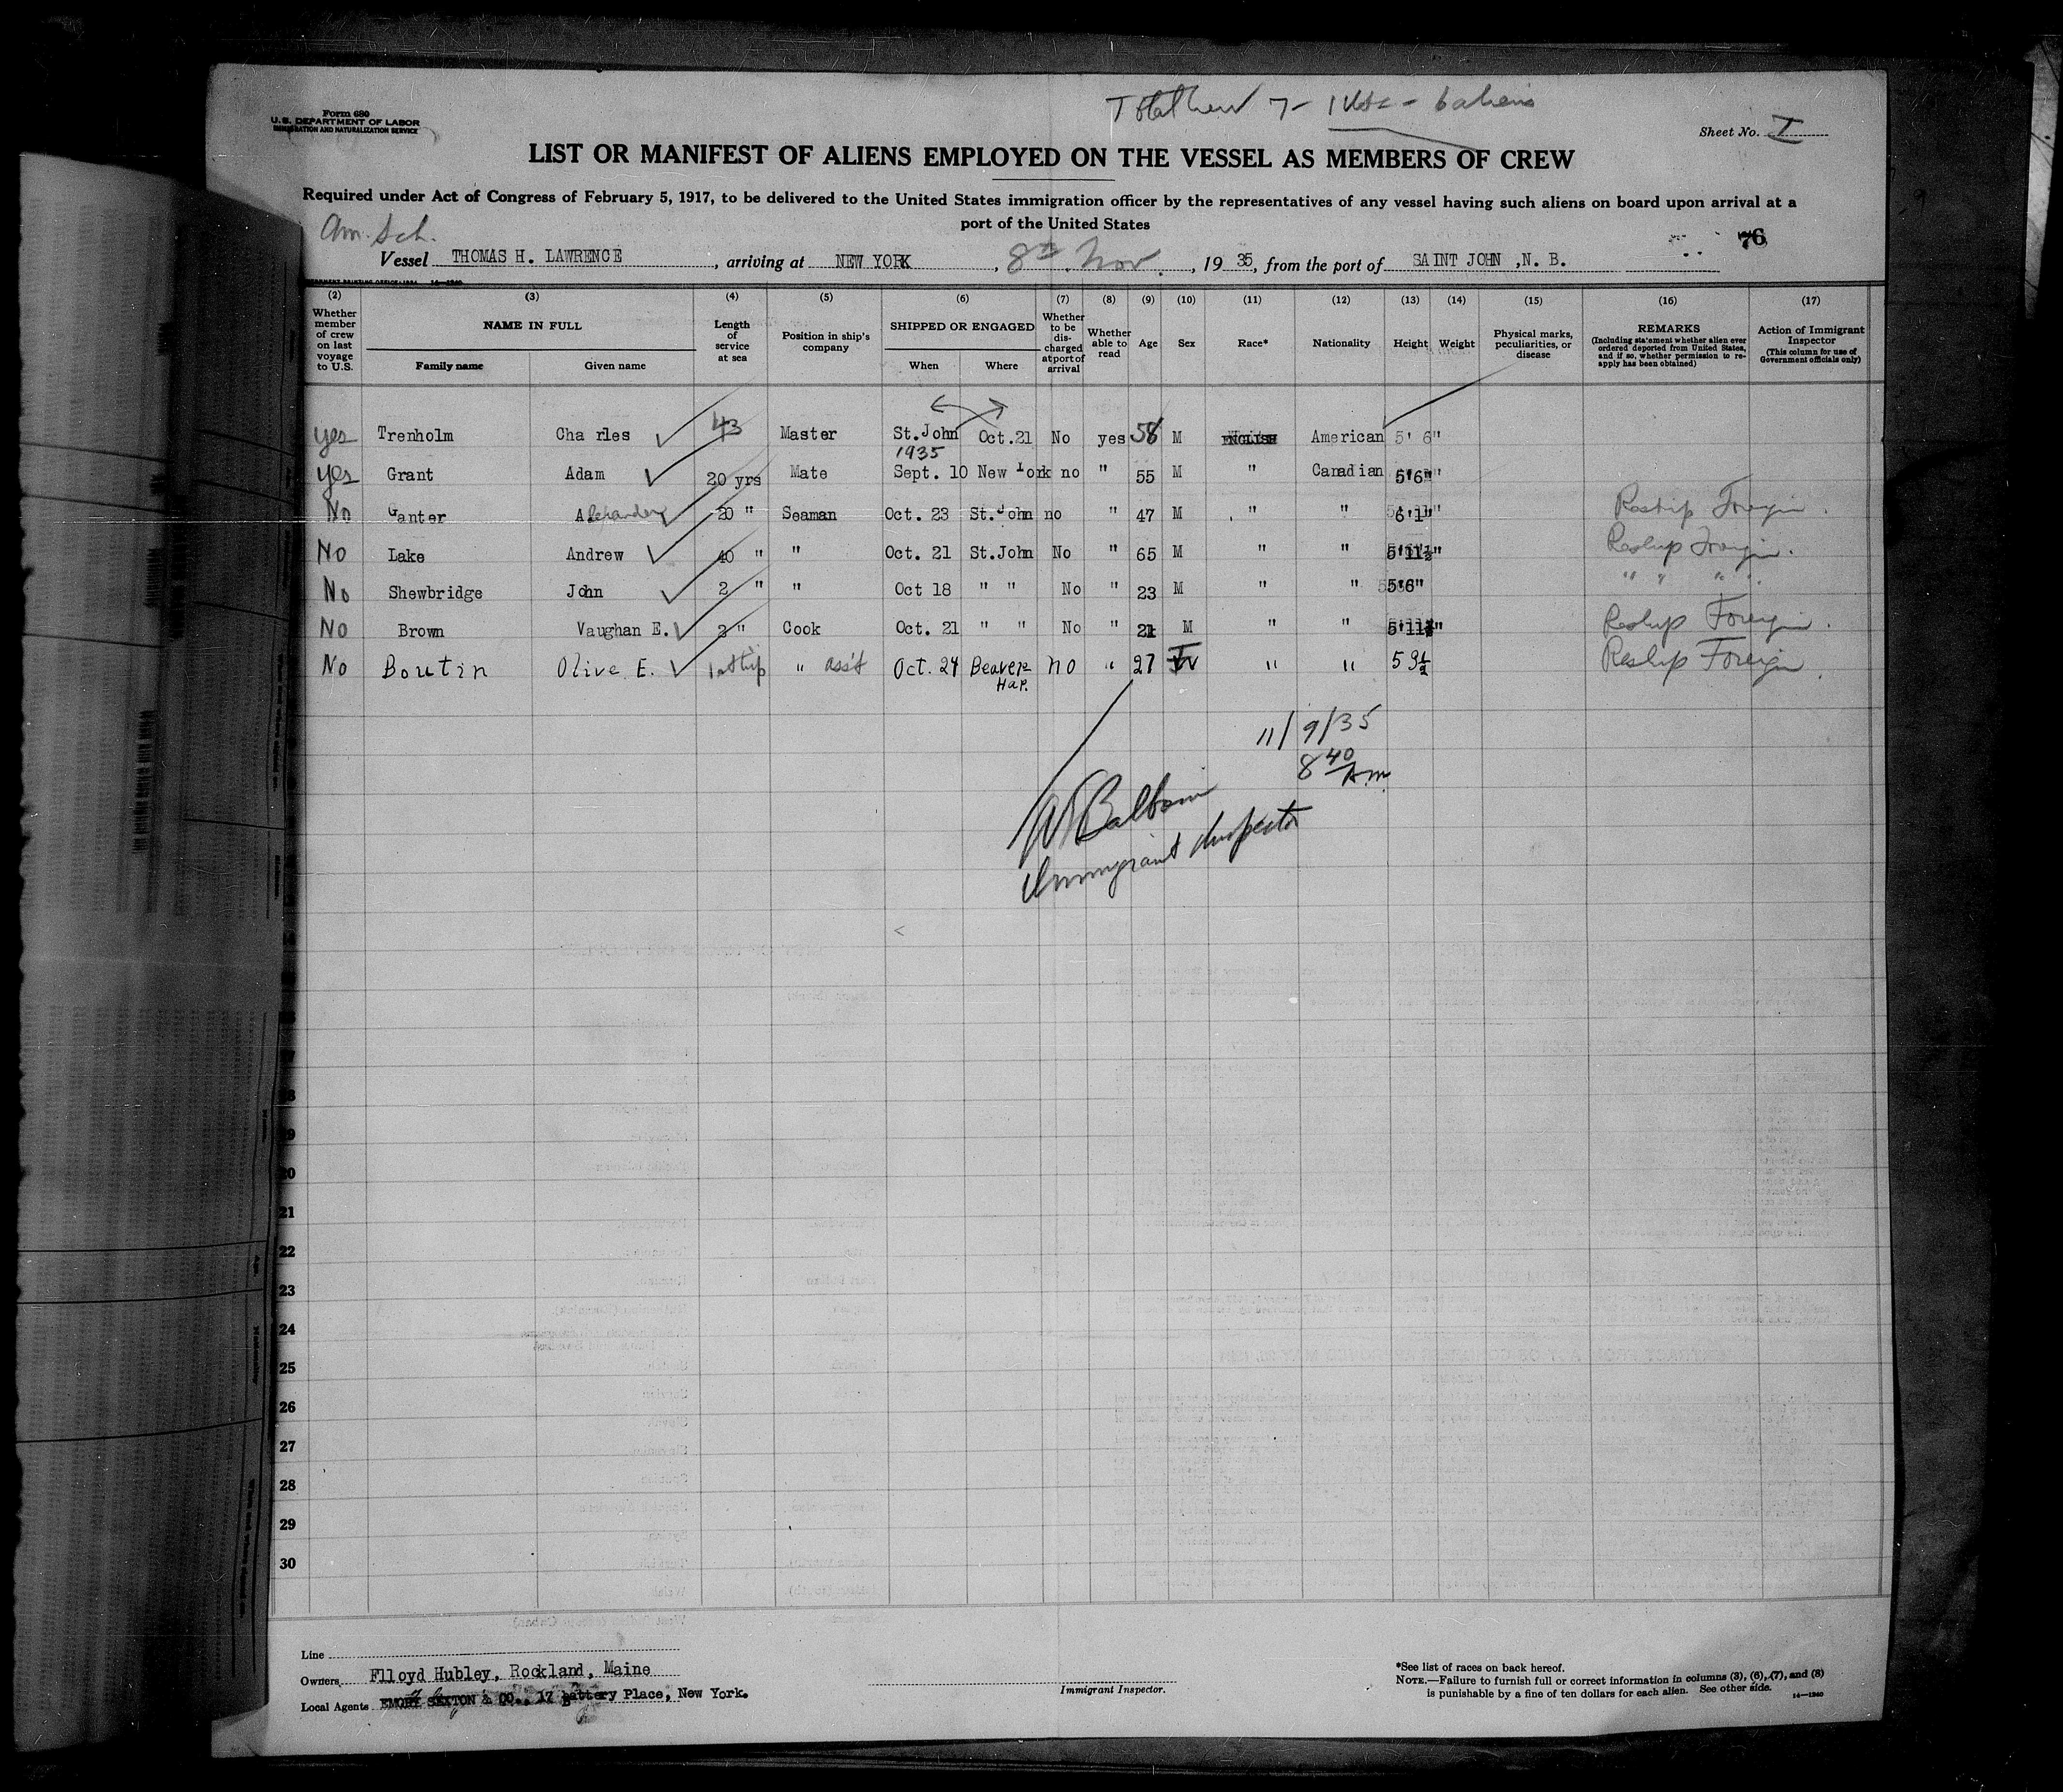 Form 680
U.S. DEPARTMENT OF LABOR
IMMIGRATION AND NATURALIZATION SERVICE
7 - 1 - 6 aliens
Sheet No. I
LIST OR MANIFEST OF ALIENS EMPLOYED ON THE VESSEL AS MEMBERS OF CREW
Required under Act of Congress of February 5, 1917, to be delivered to the United States immigration officer by the representatives of any vessel having such aliens on board upon arrival at a
port of the United States
Am. Sch.
76
Vessel THOMAS H. LAWRENCE, arriving at NEW YORK, 8th Nov., 1935, from the port of SAINT JOHN ,N. B.
(2) (3) (4) (5) (6) (7) (8) (9) (10) (11) (12) (13) (14) (15) (16) (17)
Whether member of crew on last voyage to U.S.
NAME IN FULL
Family name Given name
Length of service at sea
Position in ship's company
SHIPPED OR ENGAGED
When Where
Whether to be discharged at port of arrival
Whether able to read
Age
Sex
Race*
Nationality
Height
Weight
Physical marks, peculiarities, or disease
REMARKS
(Including statement whether alien ever ordered deported from United States, and if so, whether permission to reapply has been obtained)
Action of Immigrant Inspector
(This column for use of Government officials only)
yes Trenholm Charles 43 Master St.John 1935 Oct.21 No yes 58 M ENGLISH American 5' 6"
yes Grant Adam 20 yrs Mate Sept. 10 New York no " 55 M " Canadian 5'6"
No Ganter Alexander 20 " Seaman Oct. 23 St.John no " 47 M " " 6'1" Reship Foreign.
No Lake Andrew 40 " " Oct. 21 St.John No " 65 M " " 5'11½" Reship Foreign.
No Shewbridge John 2 " " Oct 18 " " No " 23 M " " 5'6" " " " "
No Brown Vaughan E. 2 " Cook Oct. 21 " " No " 21 M " " 5'11" Reship Foreign.
No Boutin Olive E. 1st trip " ass't Oct. 24 Beaver Har. no " 27 F " " 5 9½ Reship Foreign.
11/9/35
8 40 Am
Immigrant Inspector
18
19
20
21
22
23
24
25
26
27
28
29
30
Line
Owners Flloyd Hubley, Rockland, Maine
Local Agents EMORY SEXTON & CO., 17 Battery Place, New York.
Immigrant Inspector.
*See list of races on back hereof.
NOTE.—Failure to furnish full or correct information in columns (3), (6), (7), and (8)
is punishable by a fine of ten dollars for each alien. See other side.
14—1240